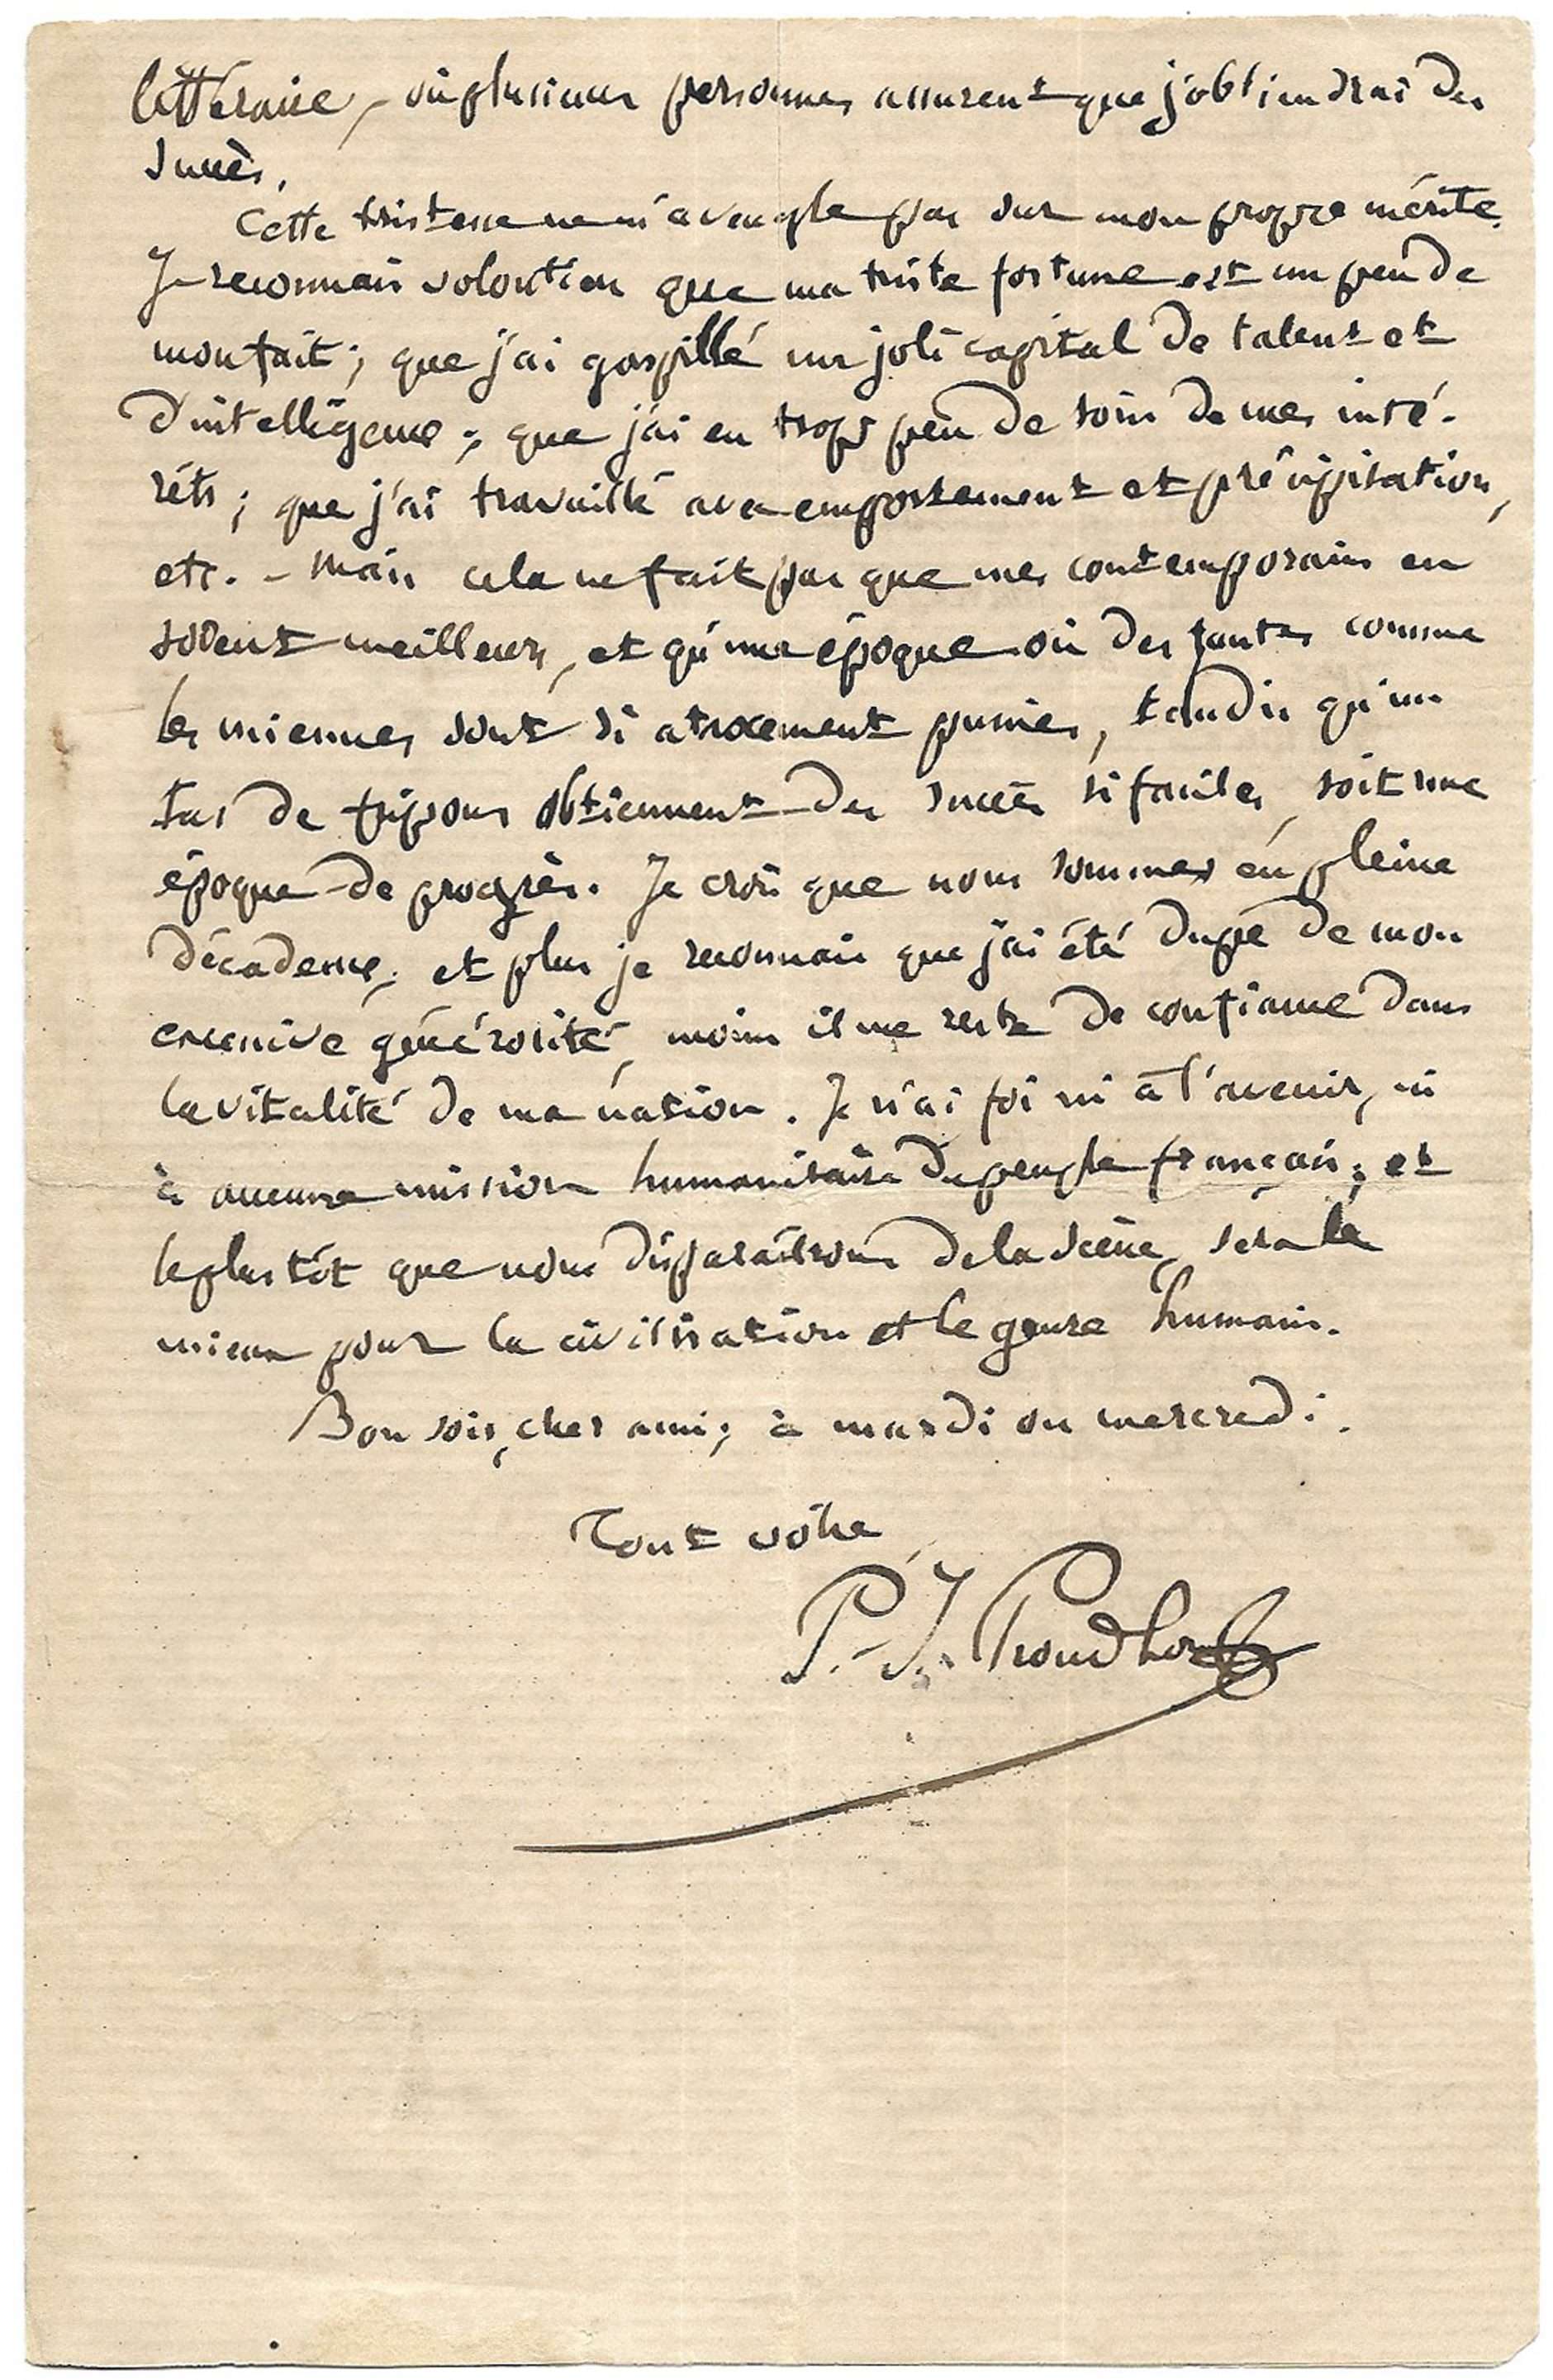 littéraire, où plusieurs personnes assurent que j'obtiendrai des
succès.
Cette tristesse ne m'aveugle pas sur mon propre mérite.
Je reconnais volontiers que ma triste fortune est un peu de
mon fait ; que j'ai gaspillé un joli capital de talent et
d'intelligence ; que j'ai eu trop peu de soin de mes inté-
rêts ; que j'ai travaillé avec emportement et précipitation,
etc. – Mais cela ne fait pas que mes contemporains en
soient meilleurs, et qu'une époque où des fautes comme
les miennes sont si atrocement punies, tandis qu'un
tas de fripons obtiennent des succès si faciles, soit une
époque de progrès. Je crois que nous sommes en pleine
décadence ; et plus je reconnais que j'ai été dupe de mon
excessive générosité, moins il me reste de confiance dans
la vitalité de ma nation. Je n'ai foi ni à l'avenir, ni
à aucune mission humanitaire du peuple français ; et
le plus tôt que nous disparaîtrons de la scène, sera le
mieux pour la civilisation et le genre humain.
Bonsoir, cher ami ; à mardi ou mercredi.
Tout vôtre
P.-J. Proudhon